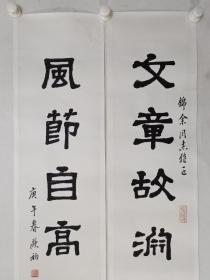 文章故渊
錦余同志雅正
風節自高
庚午春